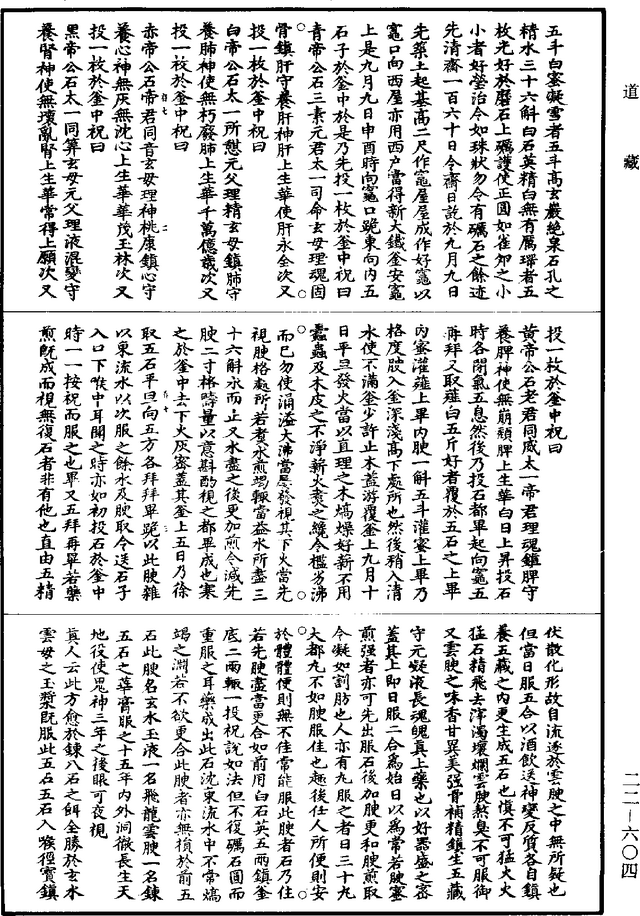 道藏
五斗白蜜凝雪者五斗高玄巖絕泉石孔之
精水三十六斛白石英精白無有厲璺者五
枚光好於磨石上礪護使正圓如雀卵之小
小者好瑩治令如珠狀勿令有礪石之餘迹
先清齋一百六十日令齋日訖於九月九日
先築土起基高二尺作竈屋屋成作好竈以
竈口向西屋亦用西戶當得新大鐵釜安竈
上是九月九日申酉時向竈口跪東向內五
石子於釜中於是乃先投一枚於釜中祝曰
青帝公石三素元君太一司命玄母理魂固
骨鎮肝守養肝神肝上生華使肝永全次又
投一枚於釜中祝曰
白帝公石太一所憇元父理精玄母鎮肺守
養肺神使無朽廢肺上生華千萬億歲次又
投一枚於釜中祝曰
赤帝公石帝君同音玄母理神桃康鎮心守
養心神無灰無沈心上生華華茂玉林次又
投一枚於釜中祝曰
黑帝公石太一同筭玄母元父理液混變守
養腎神使無壞亂腎上生華常得上願次又
投一枚於釜中祝曰
黃帝公石老君同威太一帝君理魂鎮脾守
養脾神使無崩頹脾上生華白日上昇投石
時各閉氣五息然後乃投石都畢起向竈五
再拜又取薤白五斤好者覆於五石之上畢
內蜜灌薤上畢內腴一斛五斗灌蜜上畢乃
格度腴入釜深淺高下處所也然後稍入清
水使不滿釜少許止木蓋游覆釜上九月十
日平旦發火當以直理之木熇燥好薪不用
蠹蟲及木皮之不淨薪火煑之纔令檻劣沸
而已勿使涌溢大沸當屢發視其下火當先
視腴格處所若煑水煎竭輒當益水所盡三
十六斛水而止又水盡之後更加煎令減先
腴二寸格畤量以意斟酌視之都畢成也寒
之於釜中去下火灰密蓋其釜上五日乃徐
取五石平旦向五方各拜拜畢跪以此腴雜
以東流水以次服之餘水及腴取令送石子
入口下喉中耳聞之時亦如初投石於釜中
時一一按祝而服之也畢又五拜再畢若藥
煎旣成而視無復石者非有他也直由五精
伏散化形故自流逐於雲腴之中無所疑也
但當日服五合以酒飲送神變反質各自鎮
養五藏之內更生成五石也慎不可猛火火
猛石精飛去滓濁壞爛雲腴熬臭不可服御
又雲腴之味香甘異美强骨補精鎮生五藏
守元凝液長魂魄真上藥也以好器盛之密
蓋其上即日服二合爲始日以爲常若腴蜜
煎强者亦可先出服石後加腴更和腴煎取
令凝如割肪也人亦有丸服之者日三十丸
大都丸不如腴服佳也趣後任人所便則安
於體體便則無不佳常能服此腴者石乃住
若先腴盡當更合如前用白石英五兩鎮釜
底二兩輒一投祝說如法但不復礪石圓而
重服之耳藥成出此石沈東流水中不常熇
竭之淵若不欲更合此腴者亦無損於前五
石此腴名玄水玉液一名飛龍雲腴一名鍊
五石之華膏服之十五年內外洞徹長生天
地役使鬼神三年之後眼可夜視
真人云此方愈於鍊八石之餌全勝於玄水
雲母之玉漿旣服此五石五石入喉徑寶鎮
二二—六〇四